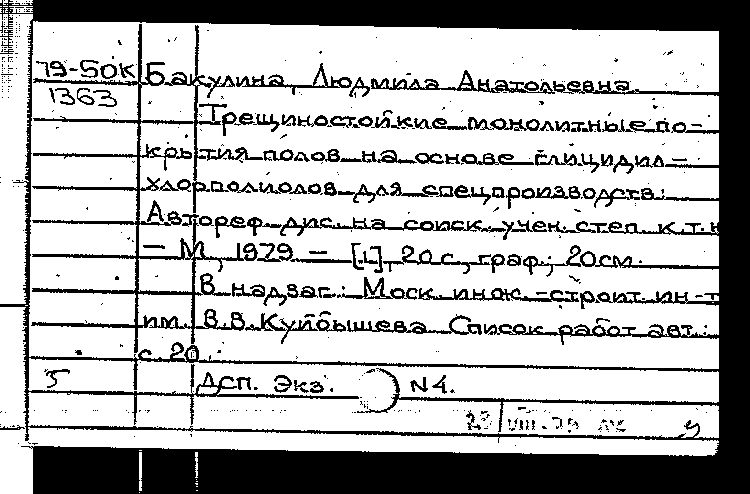 79-50к Бакулина, Людмила Анатольевна.
1363
Трещиностойкие монолитные по-
крытия полов на основе глицидил-
хлорполиолов для спецпроизводств:
Автореф. дис. на соиск. учен. степ. к.т.н
— М., 1979 — [1], 20 с., граф.; 20 см.
В надзаг.: Моск. инж.-строит. ин-т
им. В.В. Куйбышева. Список работ авт.:
с. 20.
5 ДСП. Экз. N4.
VIII-79